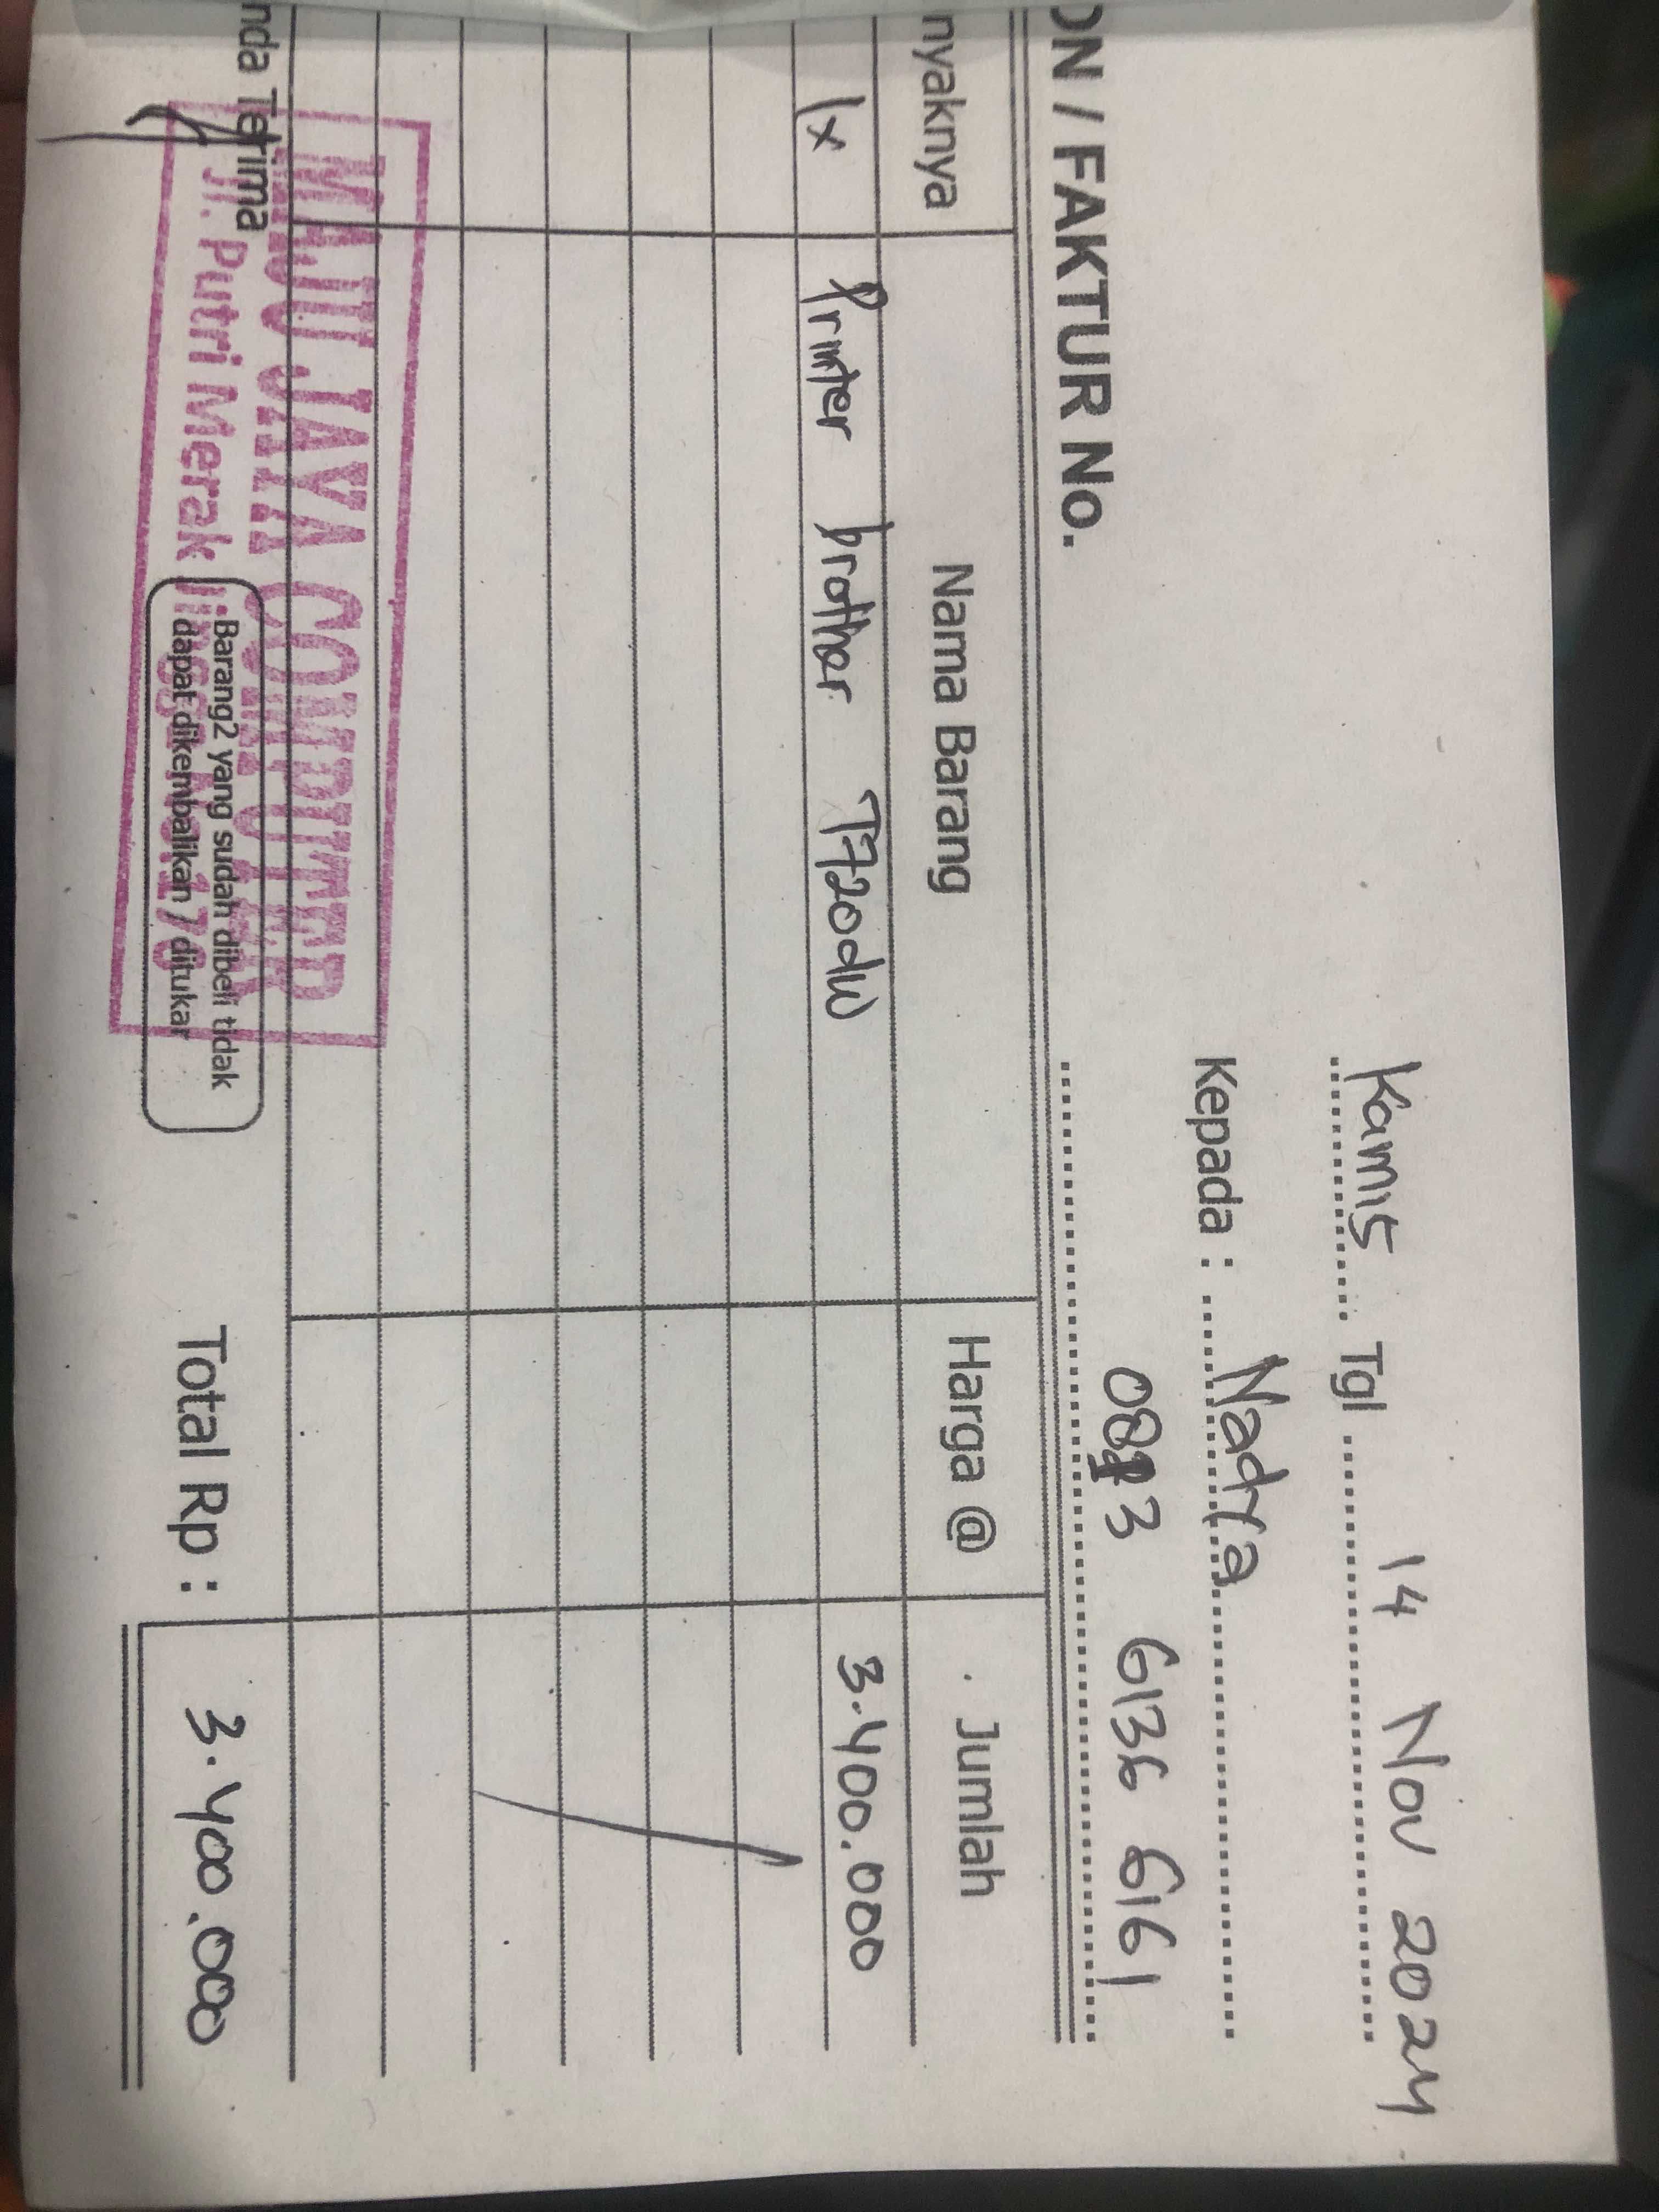 Kamis Tgl 14 Nov 2024
Kepada : Nadya
6136 6161
ON / FAKTUR No.
nyaknya Nama Barang Harga @ Jumlah
1x Printer brother T720dw 3.400.000
nda Terima
MAJU JAYA COMPUTER
Jl. Putri Merak Jingga No.
.Barang2 yang sudah dibeli tidak
dapat dikembalikan / ditukar
Total Rp : 3.400.000